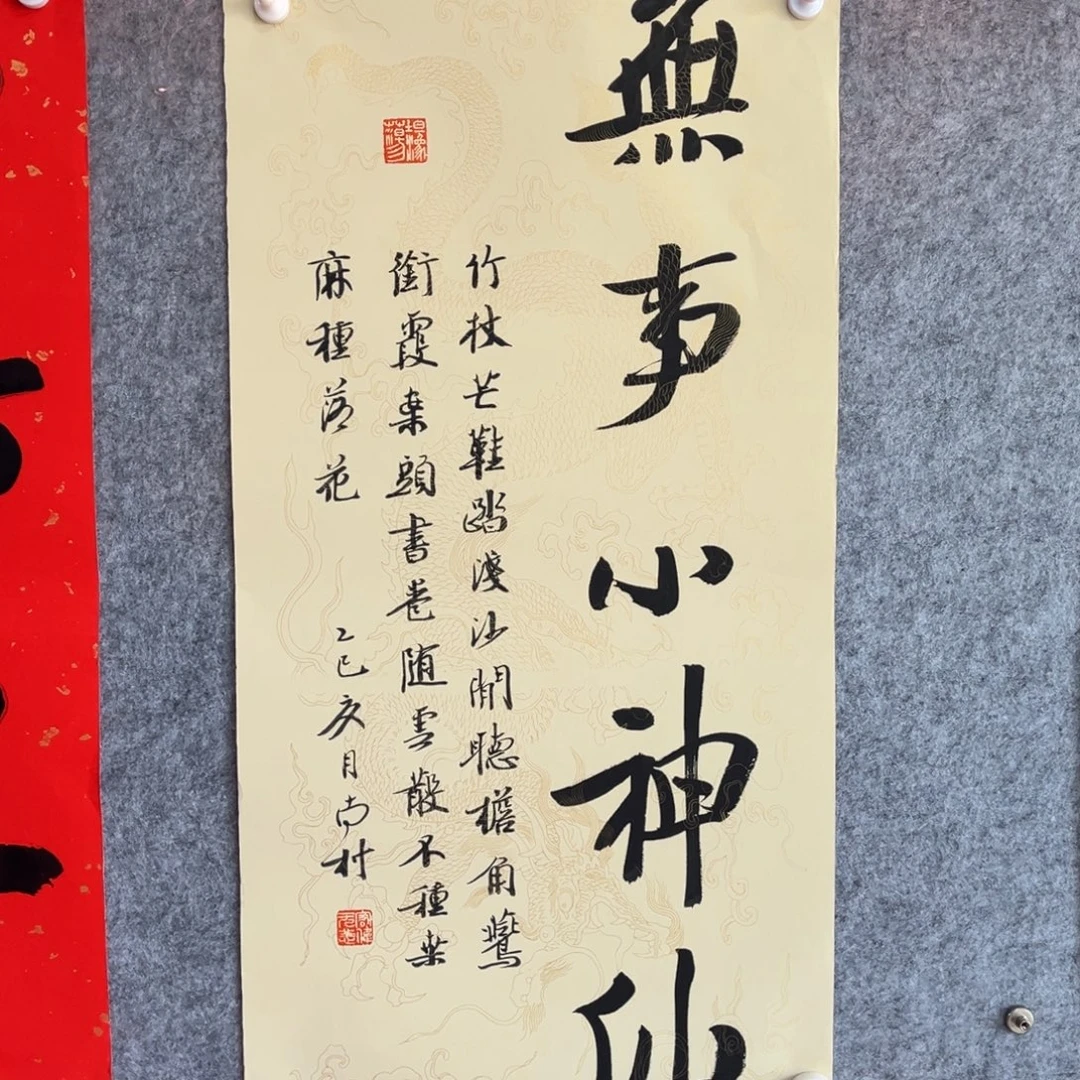 無事小神仙
竹杖芒鞋踏淺沙閒聽檐角鶯
銜霞案頭書卷随雲散不種桑
麻種落花 乙巳亥月尚村